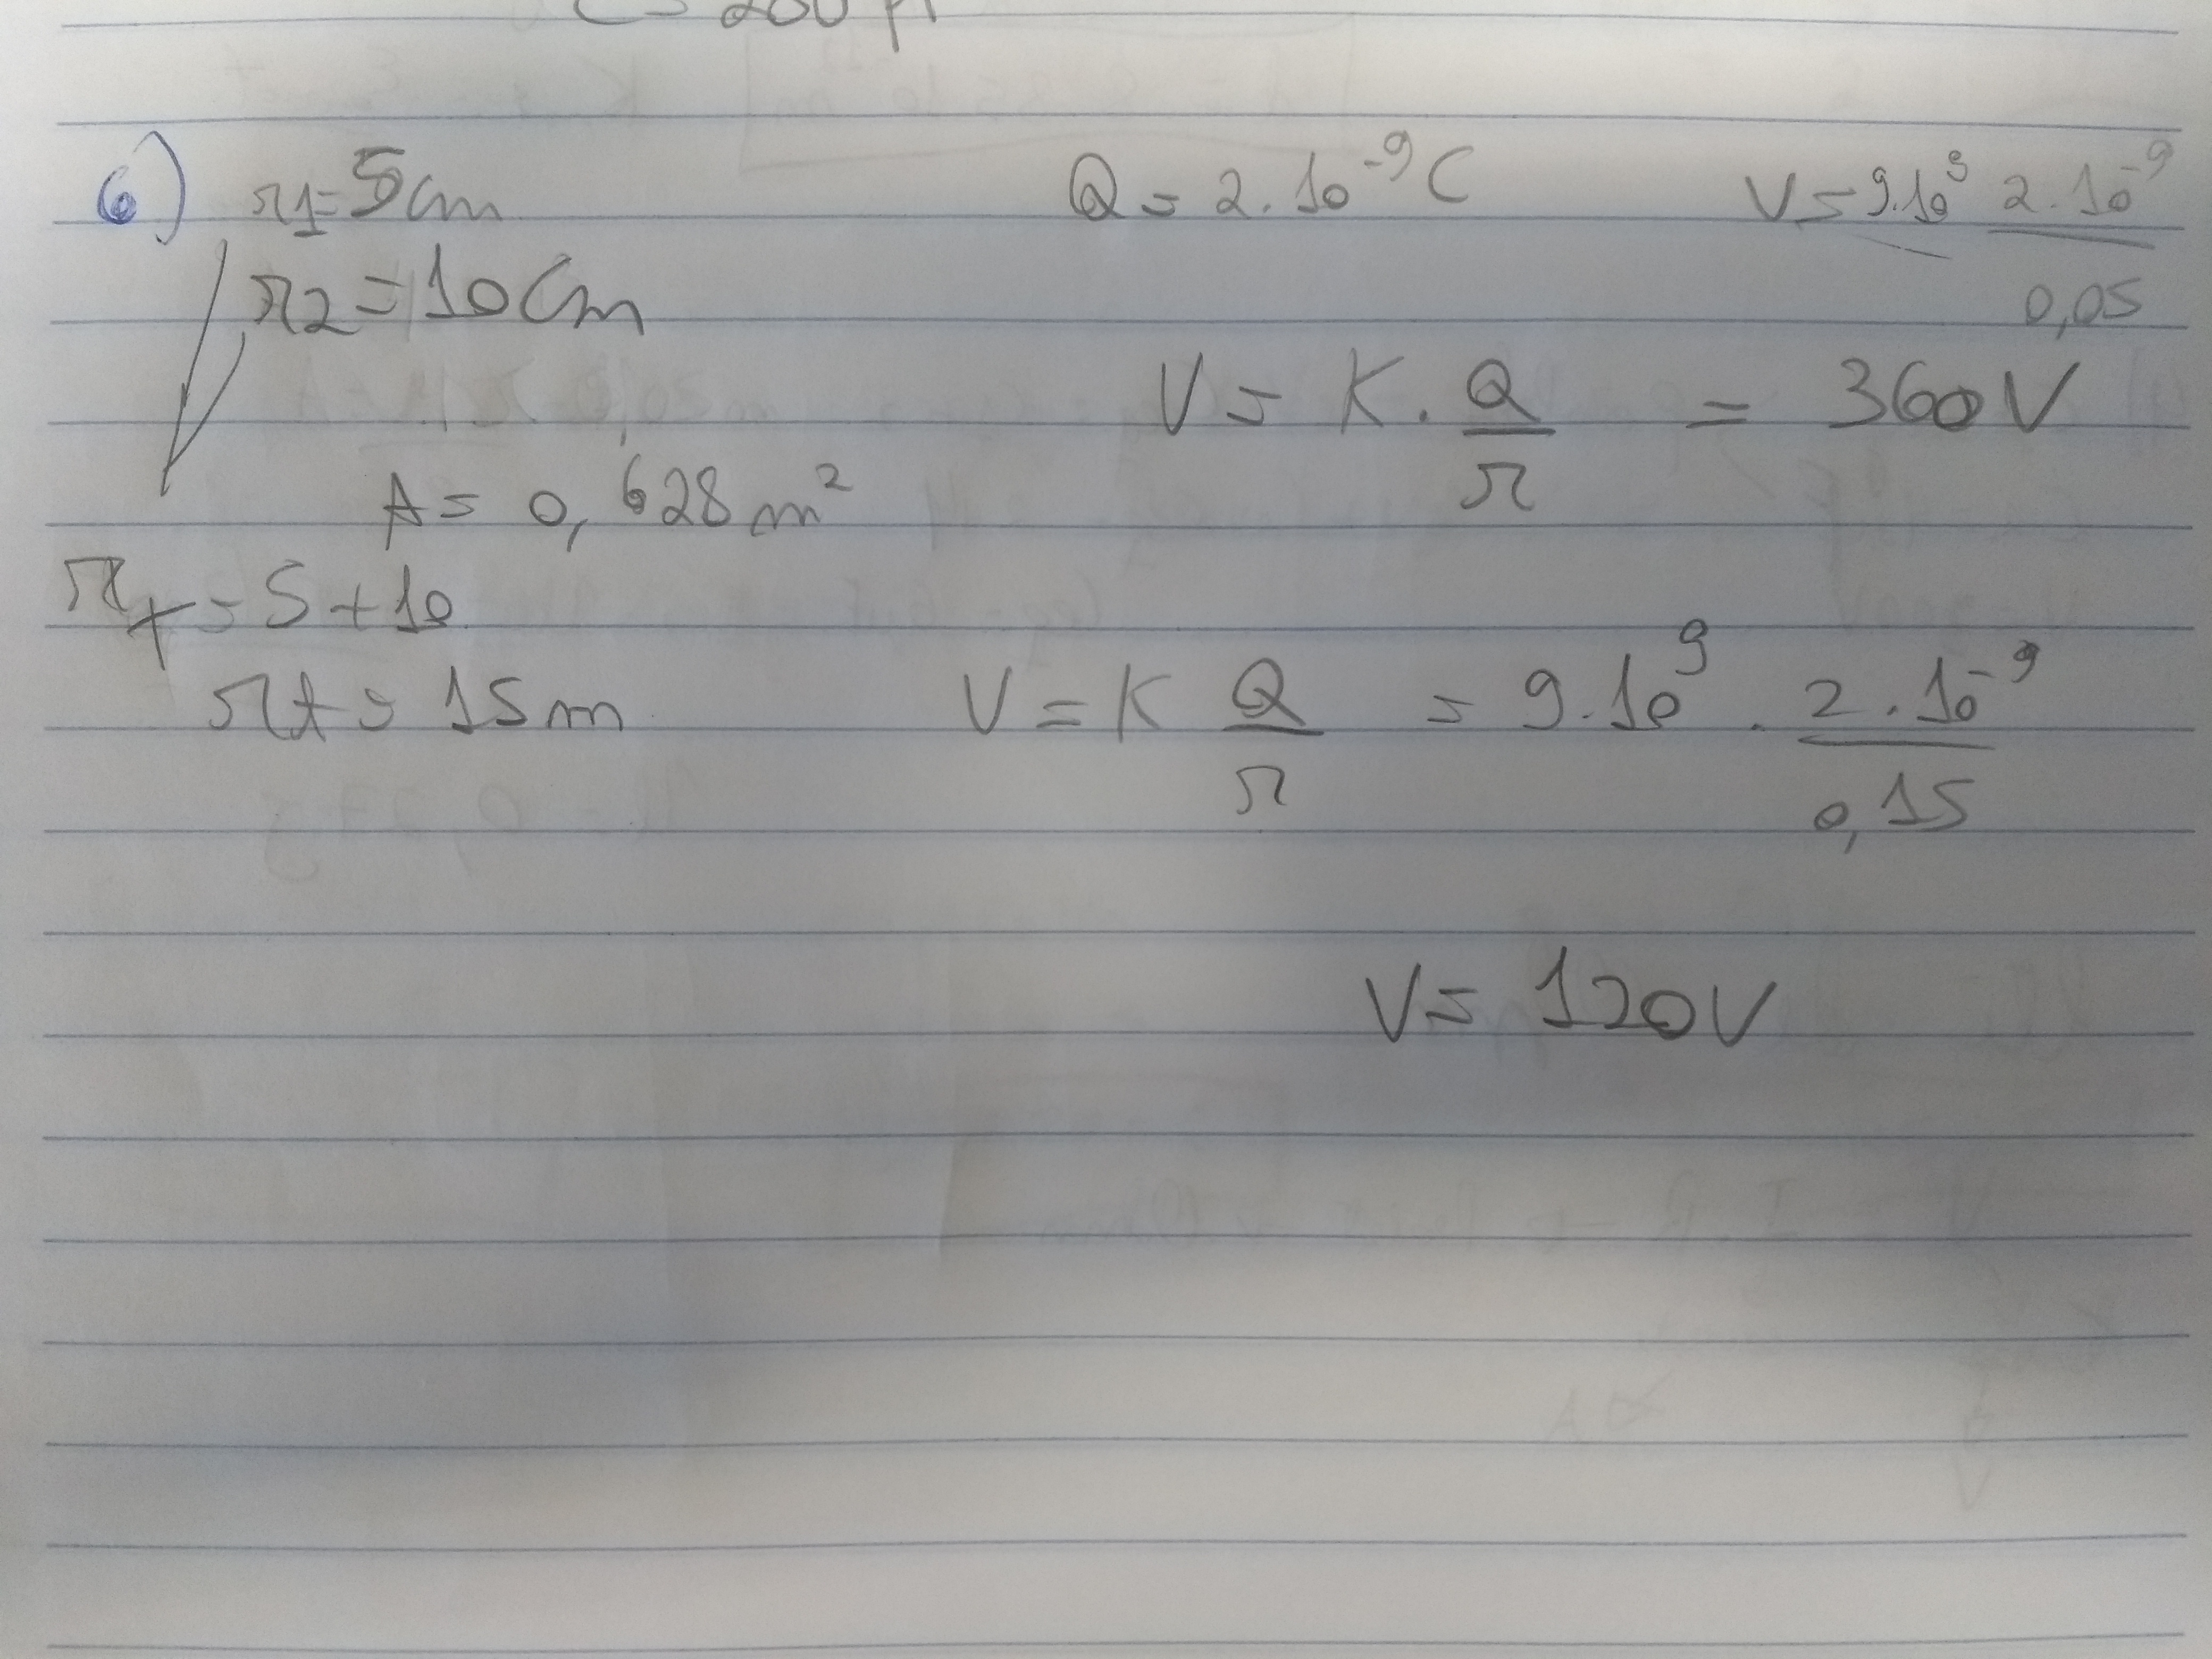 C = 200 μ
6) r1 = 5cm Q = 2.10⁻⁹ C V = 9.10⁹ 2.10⁻⁹ / 0,05
r2 = 10 Cm
V = K . Q / r = 360V
A = 0,628 m²
rt = 5 + 10
rt = 15 m V = K Q / r = 9.10⁹ . 2.10⁻⁹ / 0,15
V = 120V